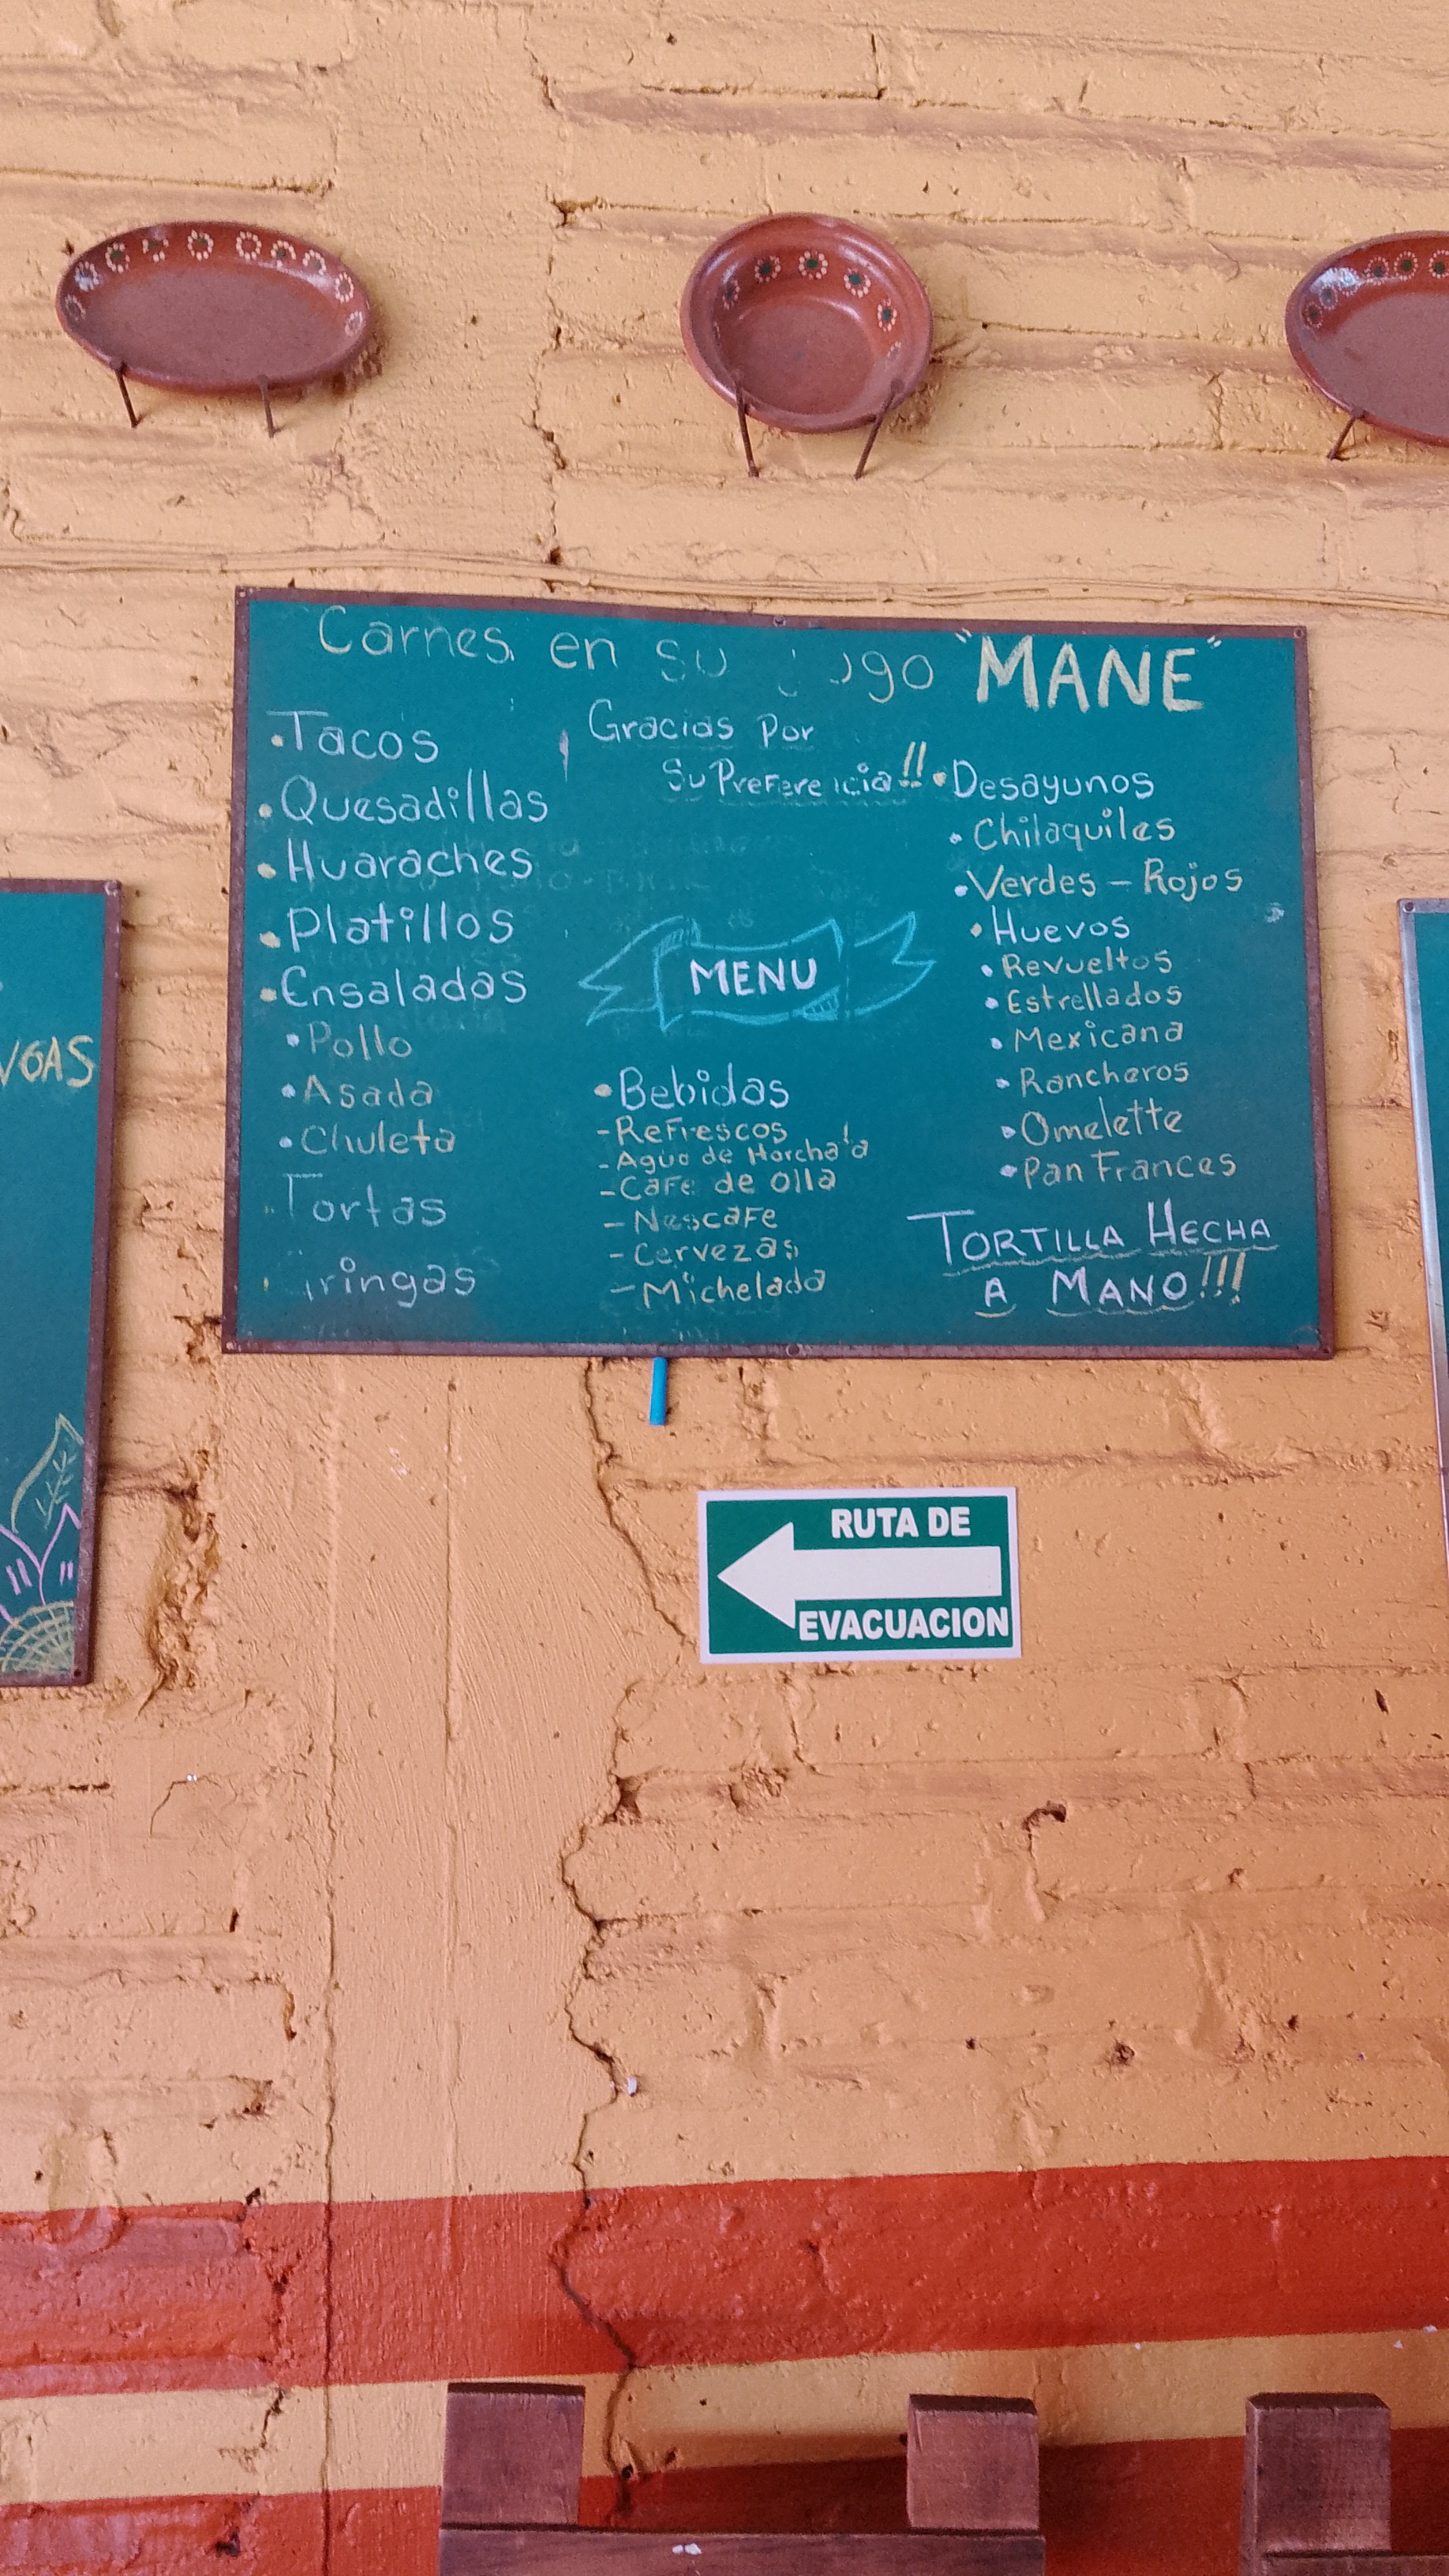 Carnes en su jugo "MANE"
Gracias Por
Su Preferencia!!
• Tacos
• Quesadillas
• Huaraches
• Platillos
• Ensaladas
• Pollo
• Asada
• Chuleta
Tortas
iringas
MENU
• Bebidas
- Refrescos
- Agua de Horchata
- Cafe de olla
- Nescafe
- Cervezas
- Michelada
• Desayunos
• Chilaquiles
• Verdes - Rojos
• Huevos
• Revueltos
• Estrellados
• Mexicana
• Rancheros
• Omelette
• Pan Frances
TORTILLA HECHA
A MANO!!!
RUTA DE
EVACUACION